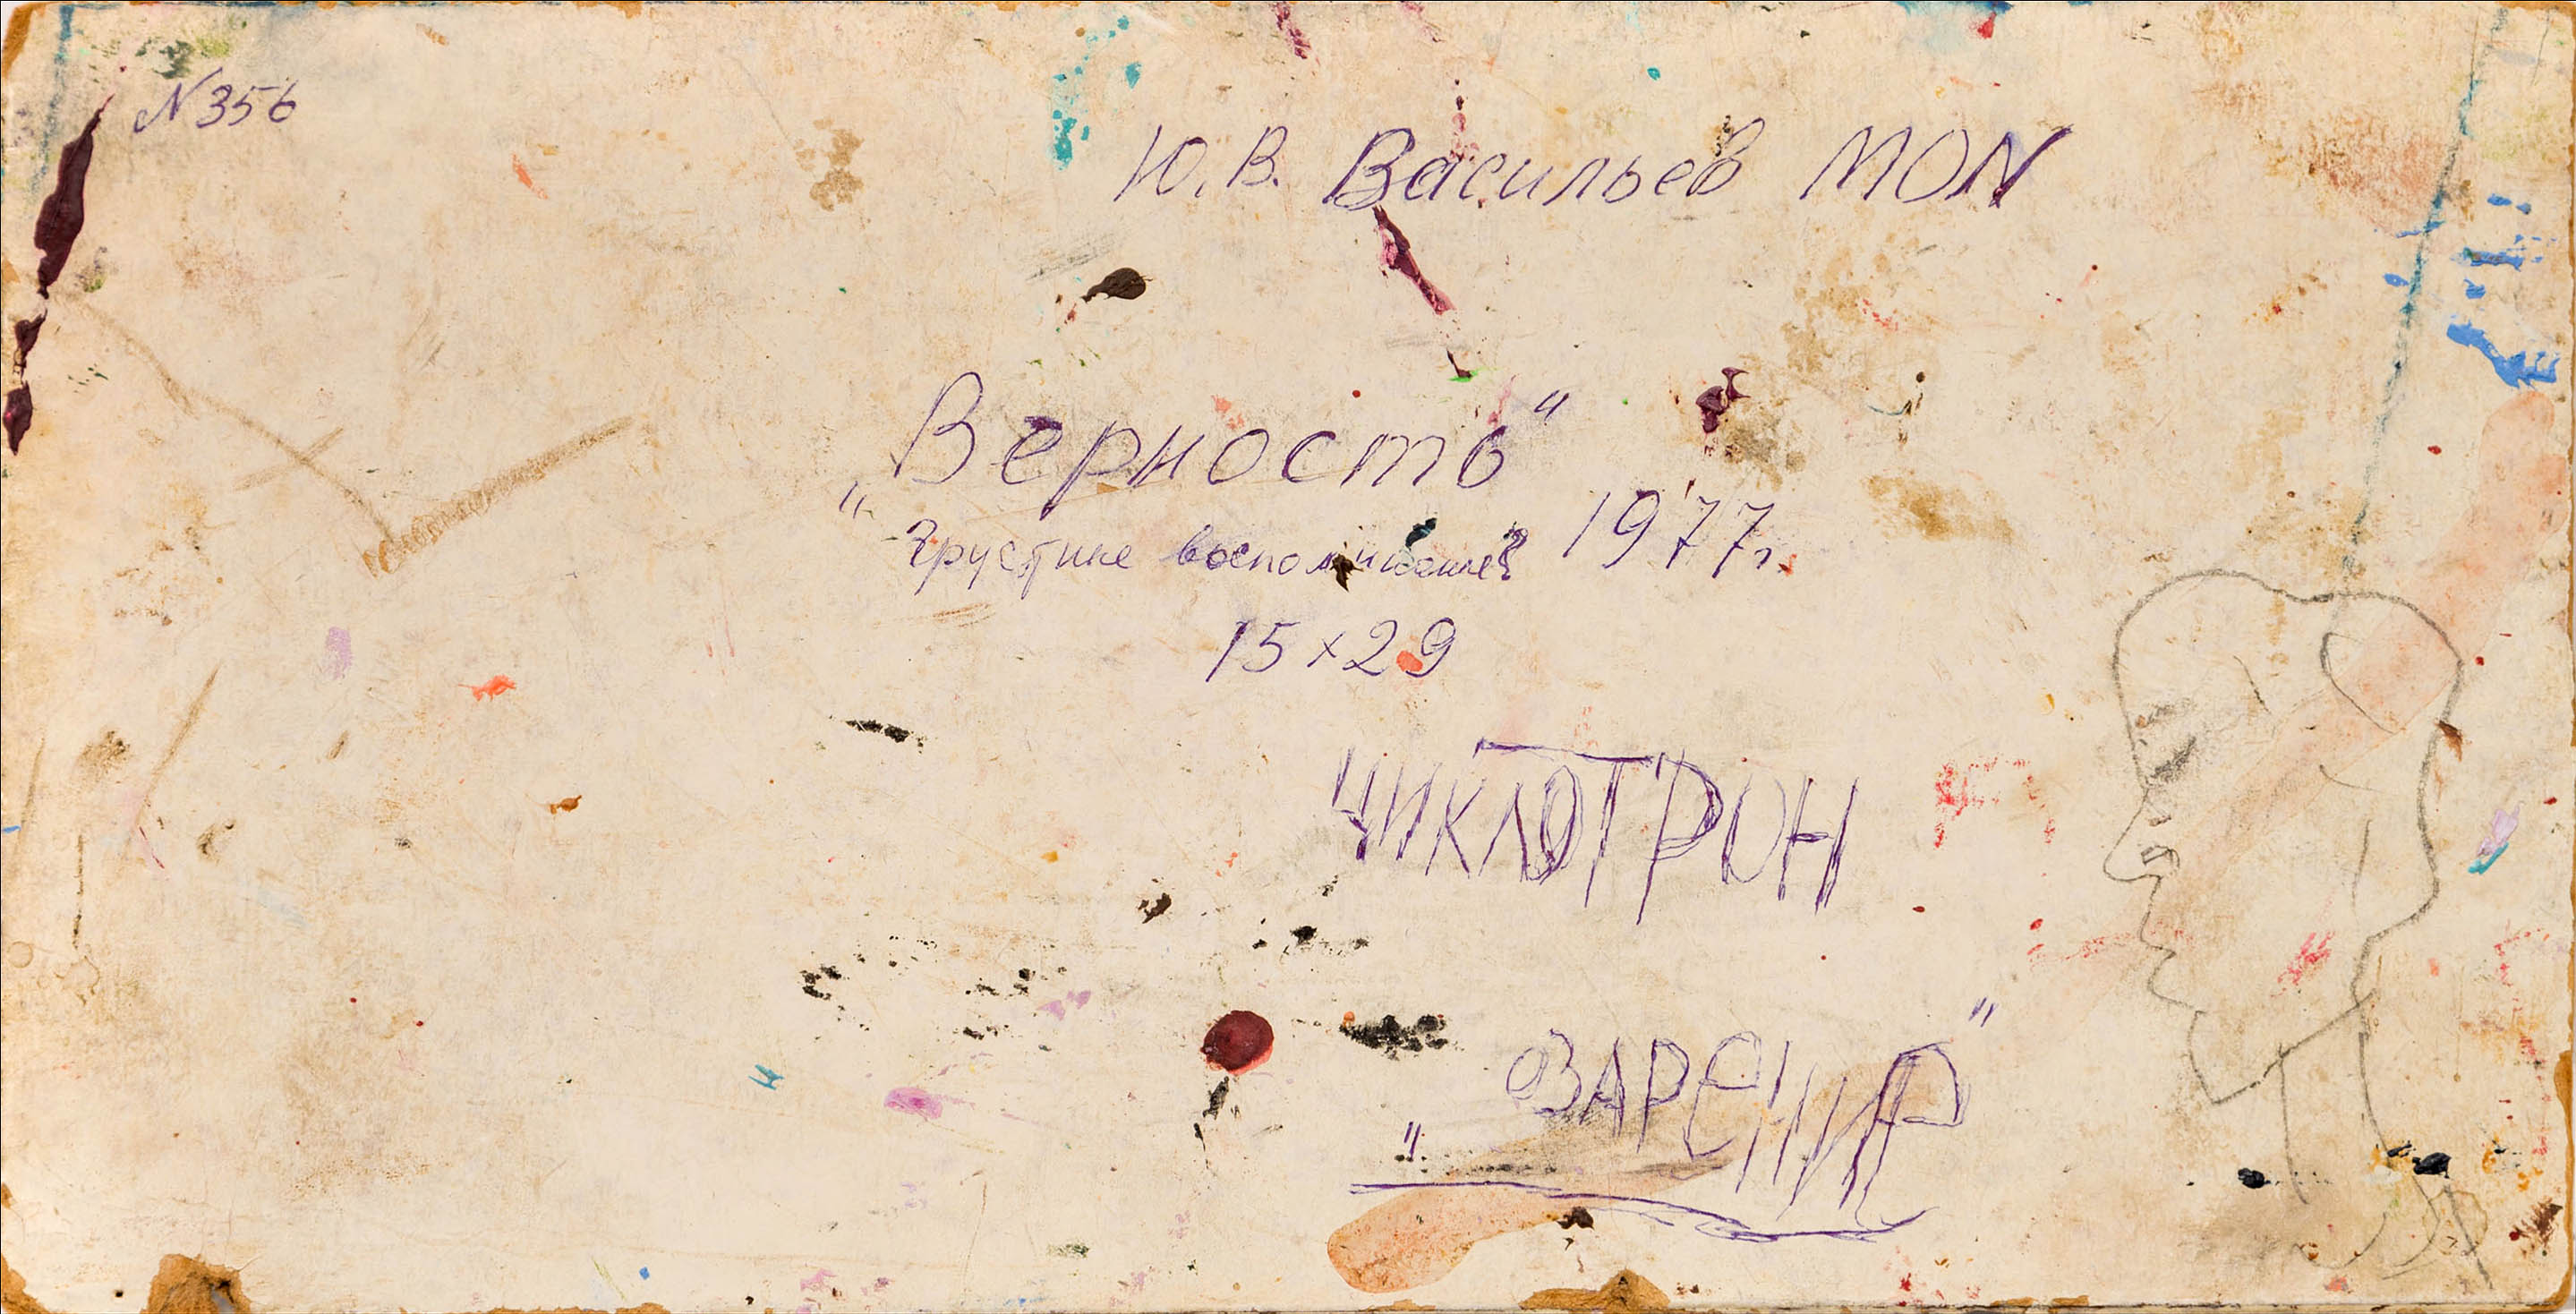 N 356
Ю. В. Васильев MON
„Верность"
Грустные воспоминания 1977 г.
15 × 29
ЦИКЛОТРОН
„ОЗАРЕНИЕ"